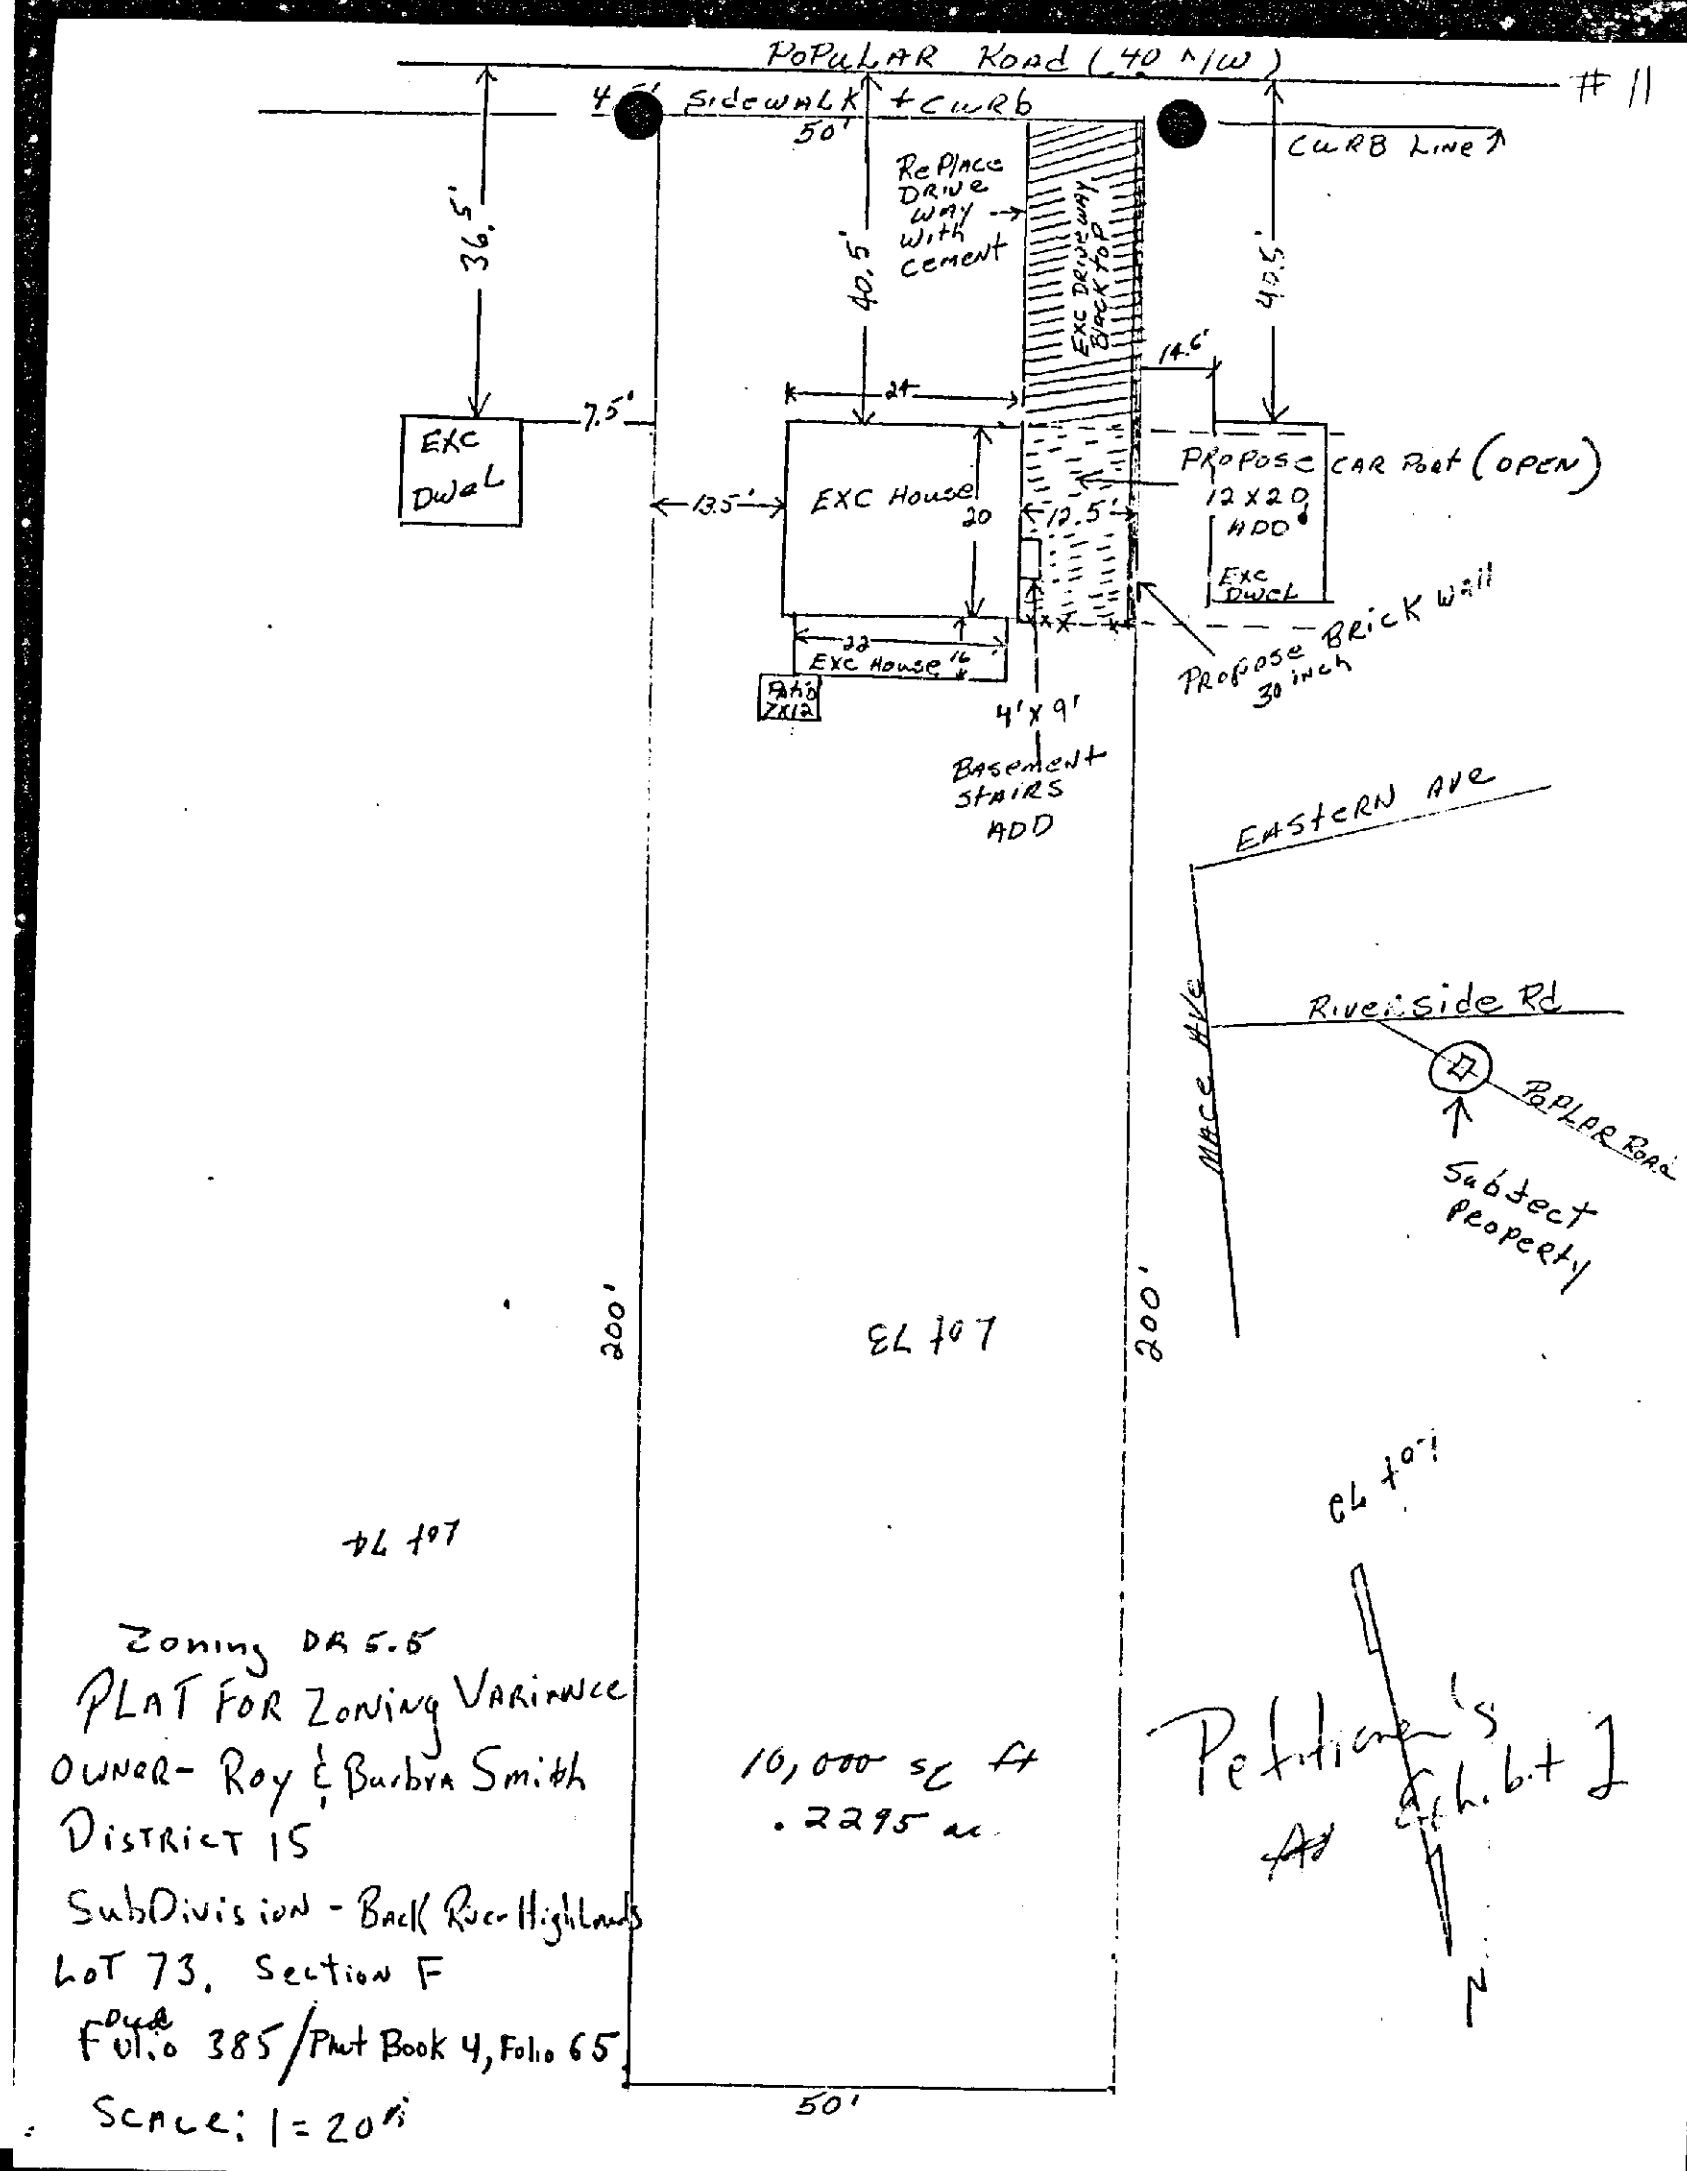 POPULAR ROAD (40 R/W)
# 11
4.5' SidewALK + CURb
50'
CURB LiNe
RePlACe
DRIVe
WAY
With
CEMENT
EXC DRIVEWAY
BlACK toP
36.5'
40.5'
40.5'
14.6'
24
7.5'
EXC
DWeL
13.5'
EXC House
20
12.5'
PROPOSe CAR PoRt (OPEN)
12 X 20
ADD
EXC
DWEL
22
EXC House 16
PAtio
7X12
PROPOSe BRiCK WAll
30 inch
4' X 9'
BAsemeNt
StAiRS
ADD
EAStERN AVe
MACe AVe
RiveRside Rd
POPLAR ROAd
Subject
PROPeRty
200'
200'
Lot 73
Lot 74
Zoning DR 5.5
PLAT FOR ZONiNg VARiANCe
OWNeR- Roy & Barbra Smith
DiSTRiCT 15
SubDivisiON - BACK RiveR HighLands
LoT 73, SectioN F
Folio 385/Plat Book 4, Folio 65
SCALe: 1 = 20
10,000 sq ft
.2295 ac
Petitioner's
Exhibit 1
N
50'